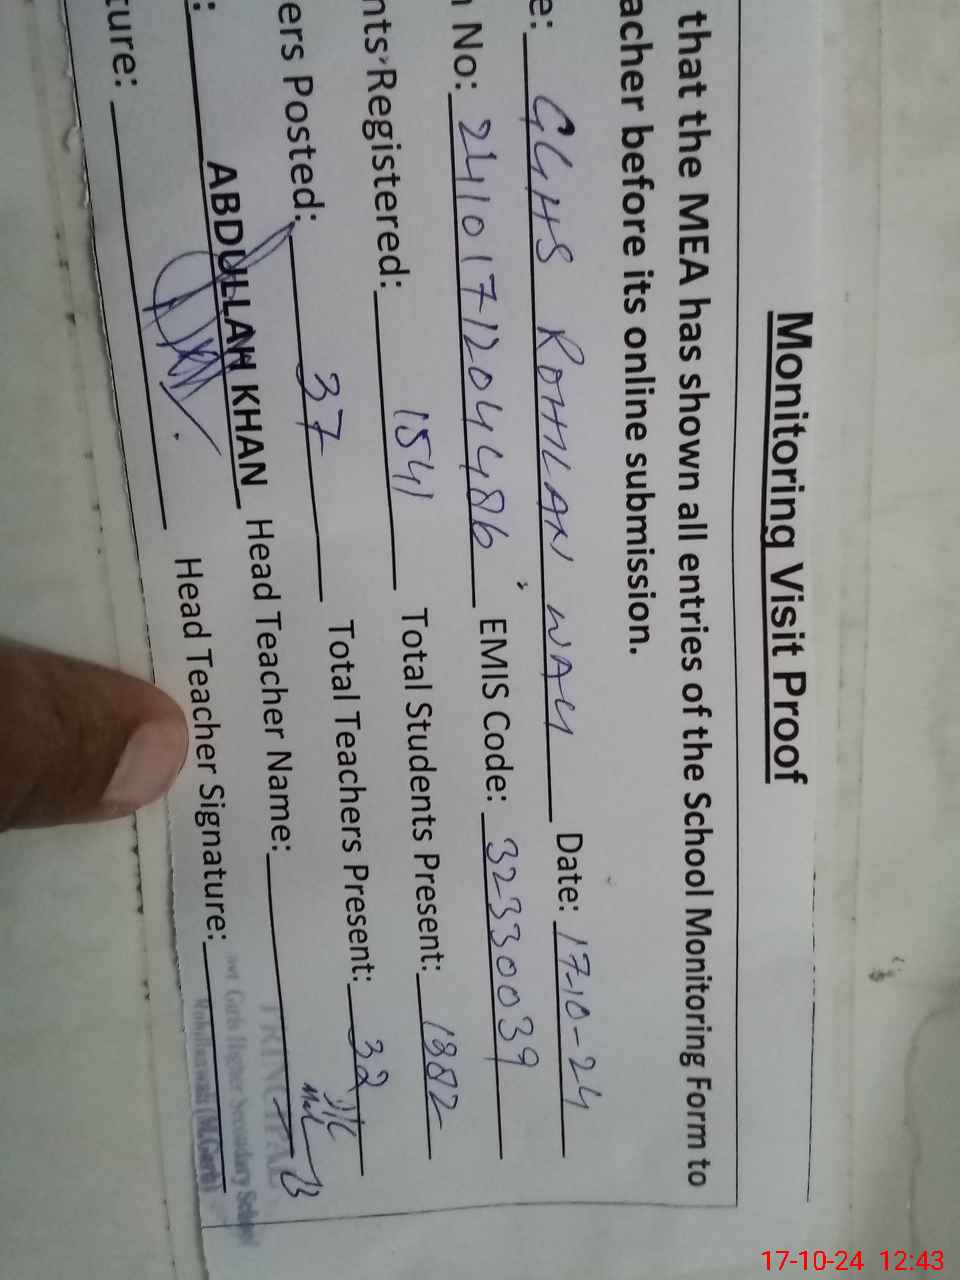 Monitoring Visit Proof
that the MEA has shown all entries of the School Monitoring Form to
acher before its online submission.
e: GGHS ROHILAN WALI Date: 17-10-24
No: 2410171204486 EMIS Code: 32330039
nts Registered: 1541 Total Students Present: 1382
ers Posted: 37 Total Teachers Present: 32
: ABDULLAH KHAN Head Teacher Name:
ture: Head Teacher Signature:
PRINCIPAL
Govt Girls Higher Secondary School
17-10-24 12:43